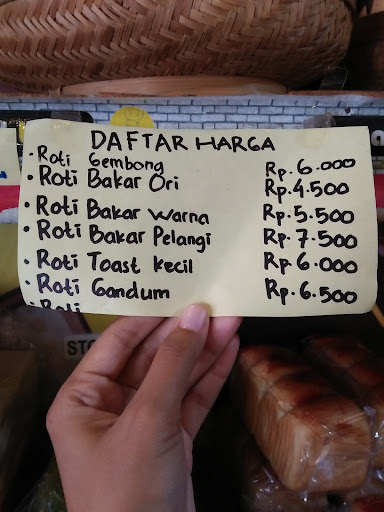 DAFTAR HARGA
• Roti Gembong Rp. 6.000
• Roti Bakar Ori Rp. 4.500
• Roti Bakar Warna Rp. 5.500
• Roti Bakar Pelangi Rp. 7.500
• Roti Toast Kecil Rp. 6.000
• Roti Gandum Rp. 6.500